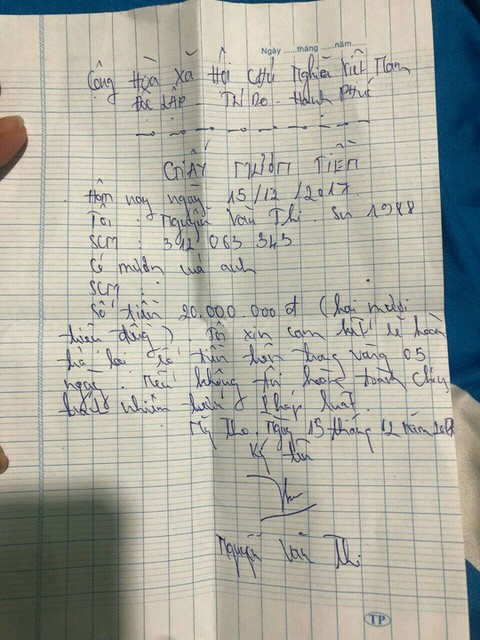 Ngày ......tháng ......năm......
Cộng Hòa Xã Hội Chủ Nghĩa Việt Nam
Độc Lập - Tự Do - Hạnh Phúc
GIẤY MƯỢN TIỀN
Hôm nay ngày 15/12/2017
Tôi : Nguyễn Văn Thi . Sn 1988
SCM : 312 063 343
Có mượn của anh
SCM :
Số tiền 20.000.000đ (hai mươi
triệu đồng). Tôi xin cam kết sẽ hoàn
trả lại số tiền trên trong vòng 05
ngày. Nếu không tôi hoàn toàn chịu
trách nhiệm trước pháp luật.
Mỹ Tho ngày 15 tháng 12 năm
Ký tên
Nguyễn Văn Thi
TP